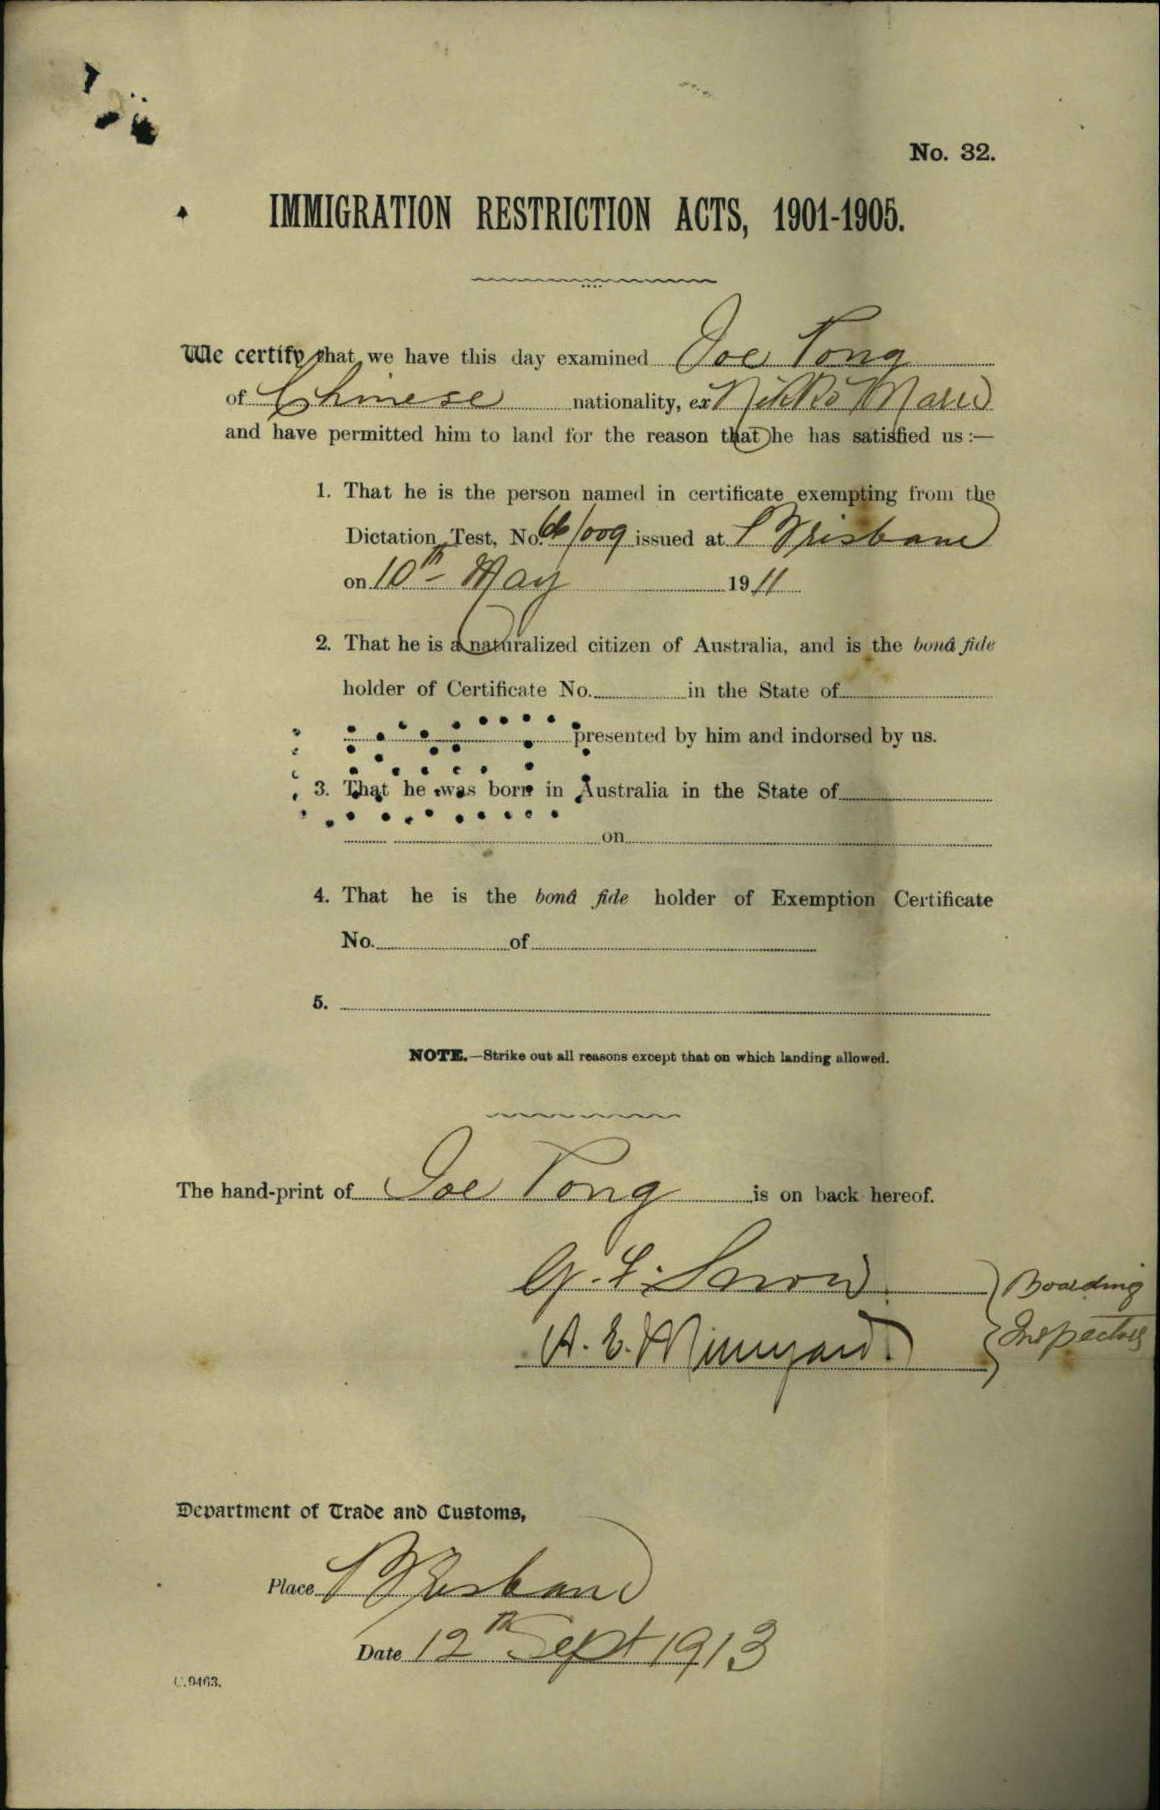 No. 32.
IMMIGRATION RESTRICTION ACTS, 1901-1905.
We certify that we have this day examined Joe Tong
of Chinese nationality, ex Nikko Maru
and have permitted him to land for the reason that he has satisfied us:—
1. That he is the person named in certificate exempting from the
Dictation Test, No. /009 issued at Brisbane
on 10th May 1911
2. That he is a naturalized citizen of Australia, and is the bonâ fide
holder of Certificate No. in the State of
presented by him and indorsed by us.
3. That he was born in Australia in the State of
on
4. That he is the bonâ fide holder of Exemption Certificate
No. of
5.
NOTE.—Strike out all reasons except that on which landing allowed.
The hand-print of Joe Tong is on back hereof.
G. F. Snow. Boarding
A. E. Inspectors
Department of Trade and Customs,
Place Brisbane
Date 12th Sept 1913
C.9463.